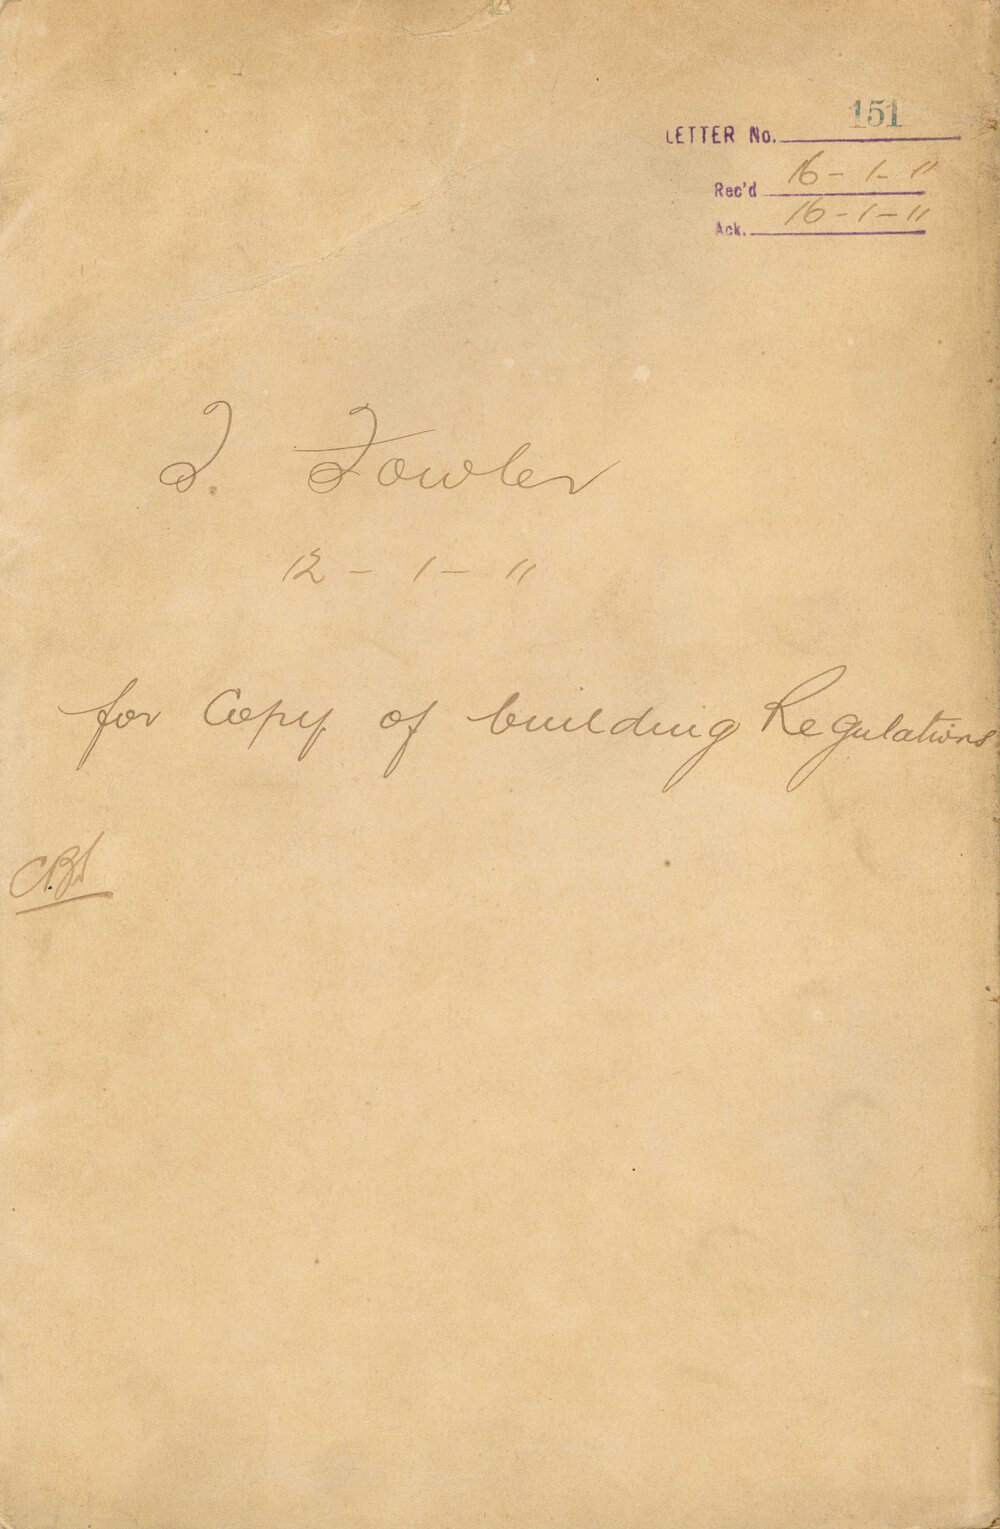 LETTER No. 151
Rec'd 16-1-11
Ack. 16-1-11
Fowler
12-1-11
for Copy of building Regulations